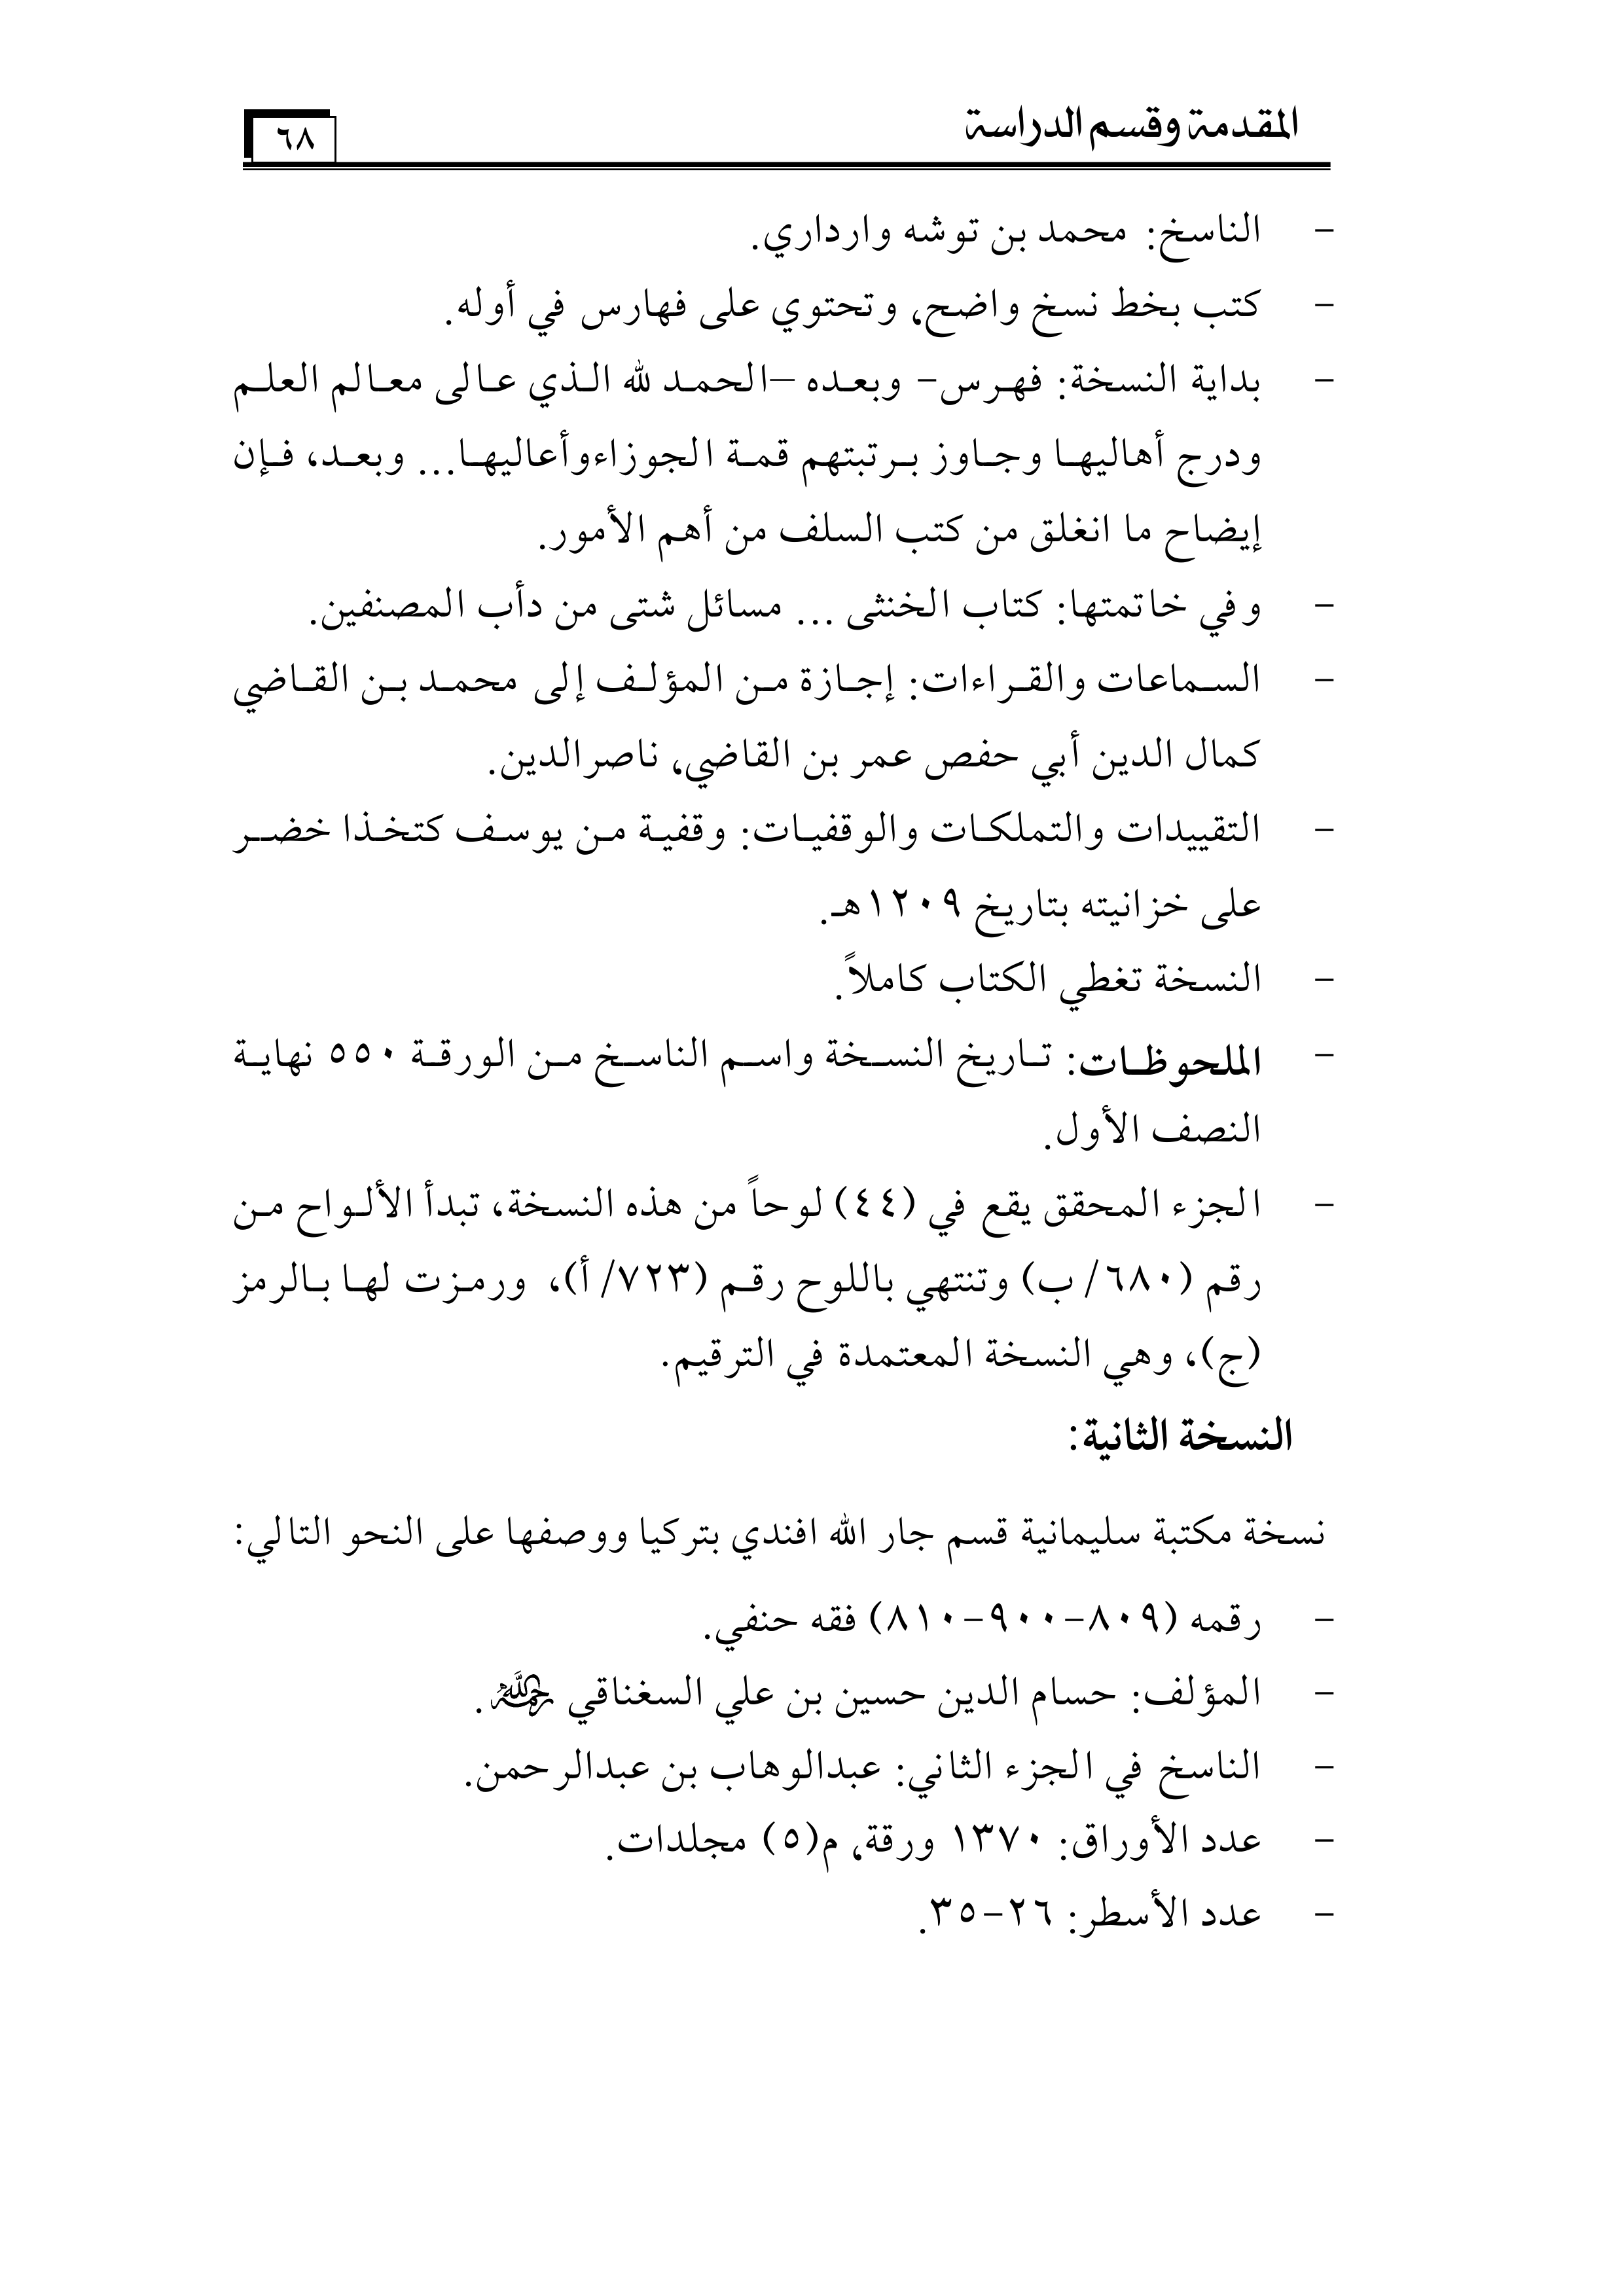 المقدمة وقسم الدراسة
٦٨
- الناسخ: محمد بن توشه وارداري.
- كتب بخط نسخ واضح، وتحتوي على فهارس في أوله.
- بداية النسخة: فهرس- وبعده –الحمد لله الذي عالى معالم العلم
ودرج أهاليها وجاوز برتبتهم قمة الجوزاءوأعاليها... وبعد، فإن
إيضاح ما انغلق من كتب السلف من أهم الأمور.
- وفي خاتمتها: كتاب الخنثى ... مسائل شتى من دأب المصنفين.
- السماعات والقراءات: إجازة من المؤلف إلى محمد بن القاضي
كمال الدين أبي حفص عمر بن القاضي، ناصرالدين.
- التقييدات والتملكات والوقفيات: وقفية من يوسف كتخذا خضر
على خزانيته بتاريخ ١٢٠٩هـ.
- النسخة تغطي الكتاب كاملاً.
- الملحوظات: تاريخ النسخة واسم الناسخ من الورقة ٥٥٠ نهاية
النصف الأول.
- الجزء المحقق يقع في (٤٤) لوحاً من هذه النسخة، تبدأ الألواح من
رقم (٦٨٠/ ب) وتنتهي باللوح رقم (٧٢٣/ أ)، ورمزت لها بالرمز
(ج)، وهي النسخة المعتمدة في الترقيم.
النسخة الثانية:
نسخة مكتبة سليمانية قسم جار الله افندي بتركيا ووصفها على النحو التالي:
- رقمه (٨٠٩-٩٠٠-٨١٠) فقه حنفي.
- المؤلف: حسام الدين حسين بن علي السغناقي رحمه الله.
- الناسخ في الجزء الثاني: عبدالوهاب بن عبدالرحمن.
- عدد الأوراق: ١٣٧٠ ورقة، م(٥) مجلدات.
- عدد الأسطر: ٢٦-٣٥.